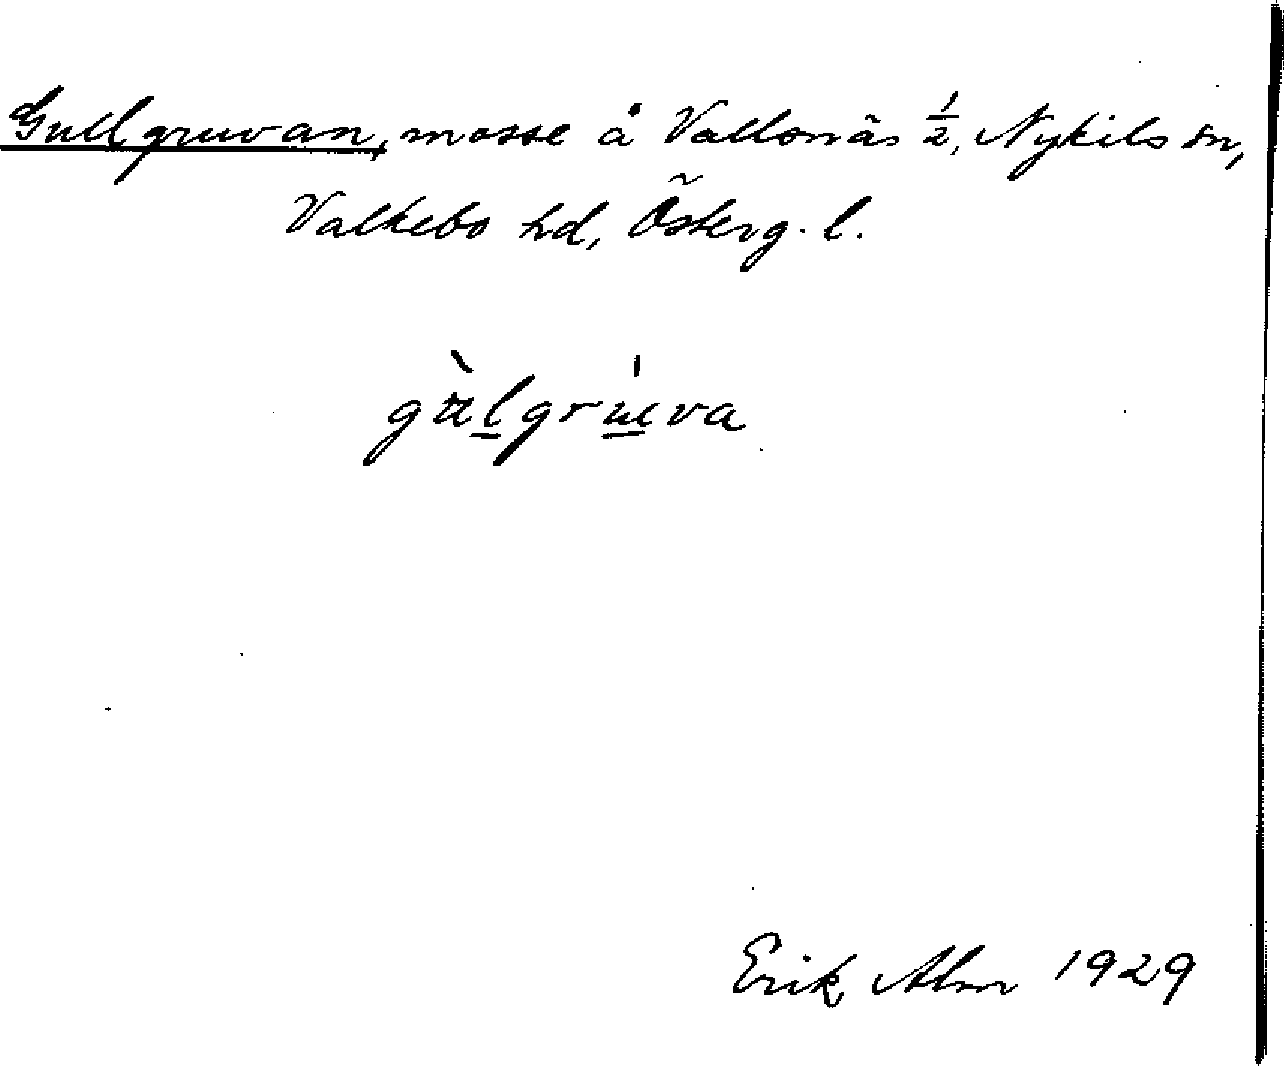 Gullgruvan, mosse å Vallonäs ½, Nykils sn,
Valkebo hd, Österg. l.
gùlgrúva
Erik Alm 1929